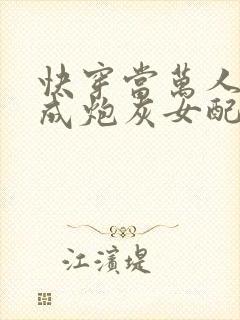 快穿當萬人
成炮灰女配
江濱堤